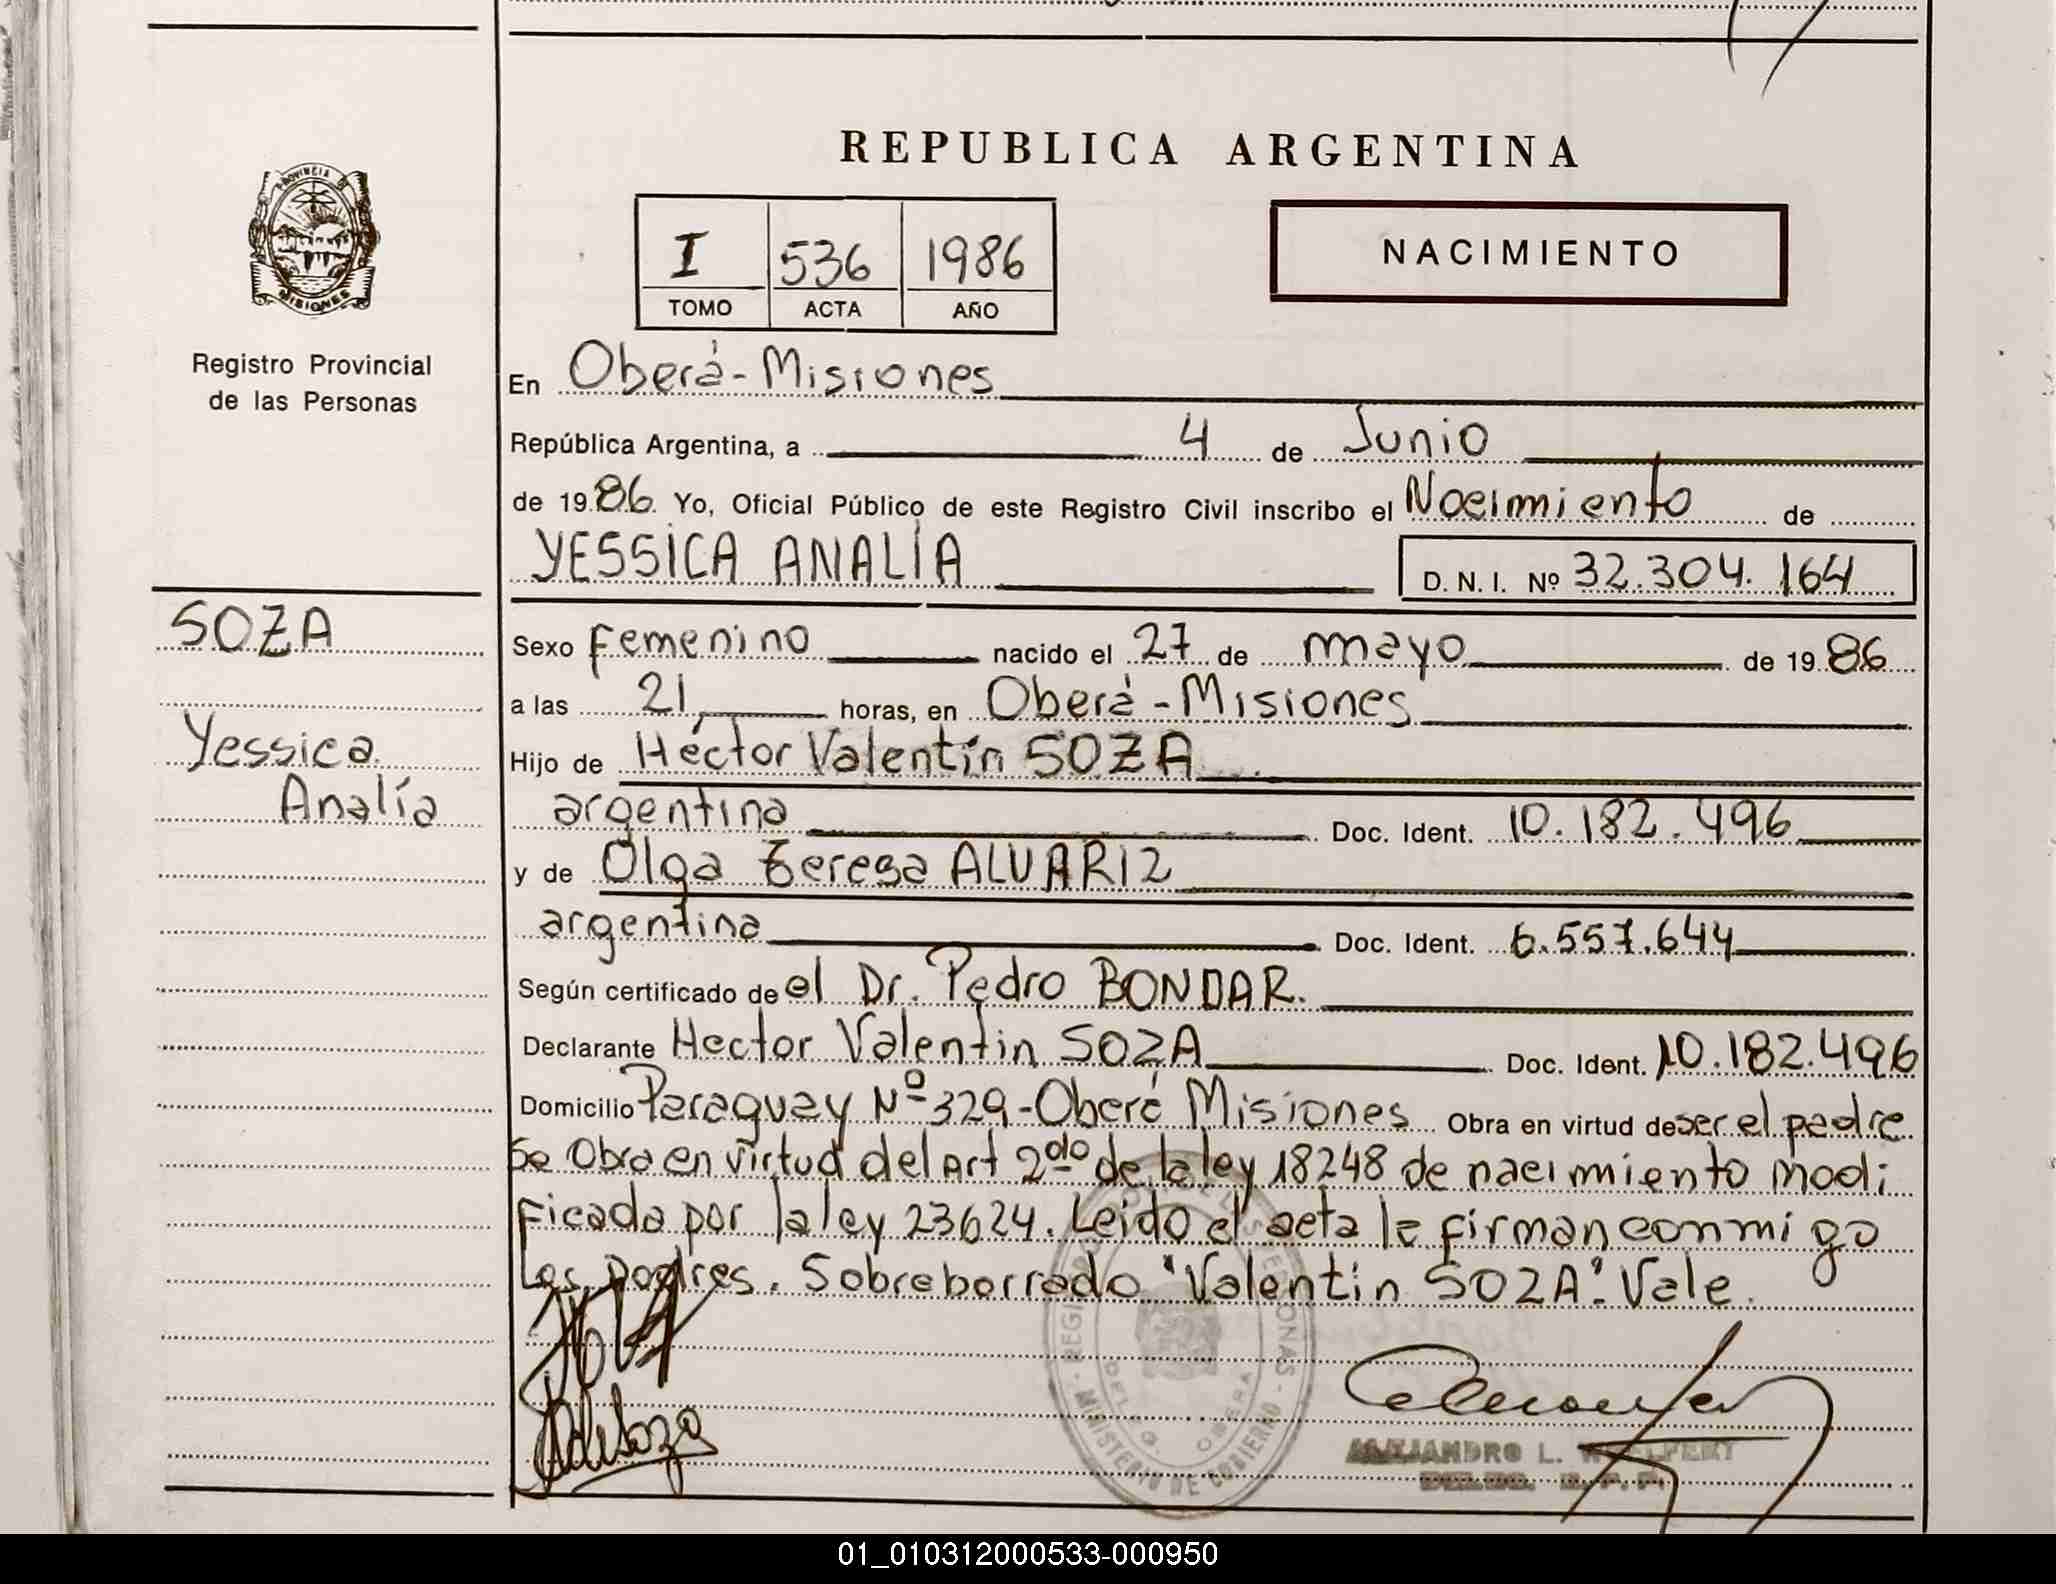 REPUBLICA ARGENTINA
PROVINCIA DE
MISIONES
Registro Provincial
de las Personas
I 536 1986
TOMO ACTA AÑO
NACIMIENTO
En Oberá - Misiones
República Argentina, a 4 de Junio
de 1986 Yo, Oficial Público de este Registro Civil inscribo el Nacimiento de
YESSICA ANALÍA D. N. I. Nº 32.304.164
SOZA
Yessica
Analía
Sexo Femenino nacido el 27 de mayo de 1986
a las 21, horas, en Oberá - Misiones
Hijo de Héctor Valentín SOZA
argentina Doc. Ident. 10.182.496
y de Olga Teresa ALVARIZ
argentina Doc. Ident. 6.557.644
Según certificado de el Dr. Pedro BONDAR.
Declarante Hector Valentin SOZA Doc. Ident. 10.182.496
Domicilio Paraguay Nº 329 - Oberá Misiones Obra en virtud de ser el padre
Se Obra en virtud del Art 2do de la ley 18248 de nacimiento modi
ficada por la ley 23624. Leido el acta la firman conmigo
Los Padres. Sobreborrado "Valentin SOZA". Vale.
REGISTRO PERSONAS
DELEG. OBERA
MINISTERIO DE GOBIERNO
ALEJANDRO L.
01_010312000533-000950